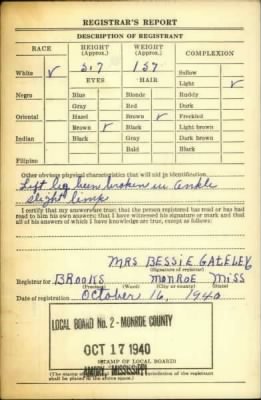 REGISTRAR'S REPORT
DESCRIPTION OF REGISTRANT
RACE HEIGHT (Approx.) WEIGHT (Approx.) COMPLEXION
White ✓ 5.7 157 Sallow
EYES HAIR Light ✓
Negro Blue Blonde Ruddy
Gray Red Dark
Oriental Hazel Brown ✓ Freckled
Brown ✓ Black Light brown
Indian Black Gray Dark brown
Bald Black
Filipino
Other obvious physical characteristics that will aid in identification
Left leg been broken in ankle
slight limp
I certify that my answers are true; that the person registered has read or has had
read to him his own answers; that I have witnessed his signature or mark and that
all of his answers of which I have knowledge are true, except as follows:
MRS BESSIE GATELEY
(Signature of registrar)
Registrar for BROOKS MONROE MISS
(Precinct) (Ward) (City or county) (State)
Date of registration October 16, 1940
LOCAL BOARD No. 2 - MONROE COUNTY
OCT 17 1940
(STAMP OF LOCAL BOARD)
AMORY, MISSISSIPPI
(The stamp of the jurisdiction of the registrant
shall be placed in the above space.)